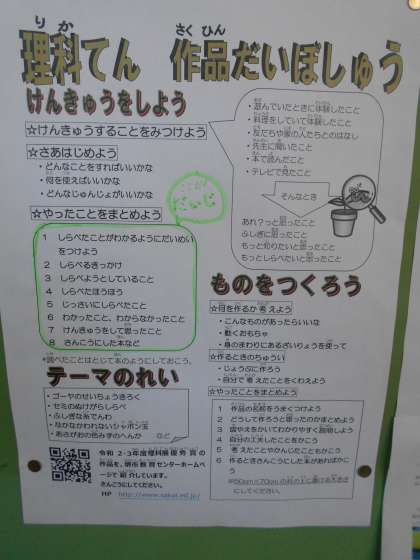 りか さくひん
理科てん 作品だいぼしゅう
けんきゅうをしよう
☆けんきゅうすることをみつけよう
☆さあはじめよう
・どんなことをすればいいかな
・何を使えばいいかな
・どんなじゅんじょがいいかな
☆やったことをまとめよう
だいじ
1 しらべたことがわかるようにだいめい
をつけよう
2 しらべるきっかけ
3 しらべようとしていること
4 しらべたほうほう
5 じっさいにしらべたこと
6 わかったこと、わからなかったこと
7 けんきゅうをして思ったこと
8 さんこうにした本など
*調べたことはとじて本のようにしておこう。
テーマのれい
・ゴーヤのせいちょうきろく
・セミのぬけがらしらべ
・ふしぎな糸でんわ
・なかなかわれないシャボン玉
・あさがおの色みずのへんか など
令和2・3年度理科展優秀賞の
作品を、堺市教育センターホームペ
ージで紹介しています。
さんこうにしてください。
HP http://www.sakai.ed.jp/
・遊んでいたときに体験したこと
・料理をしていて体験したこと
・友だちや家の人たちとのはなし
・先生に聞いたこと
・本で読んだこと
・テレビで見たこと
そんなとき
あれ？っと思ったこと
ふしぎに思ったこと
もっと知りたいと思ったこと
もっとしらべたいと思ったこと
ものをつくろう
☆何を作るか考えよう
・こんなものがあったらいいな
・動くおもちゃ
・身のまわりにあるざいりょうを使って
☆作るときのちゅうい
・じょうぶに作ろう
・自分で考えたことをくわえよう
☆やったことをまとめよう
1 作品の名前をうまくつけよう
2 どうして作ろうと思ったのかまとめよう
3 図やえをかいてわかりやすく説明しよう
4 自分の工夫したことをかこう
5 考えたことやかんじたこともかこう
6 作るときさんこうにした本があればかこ
う